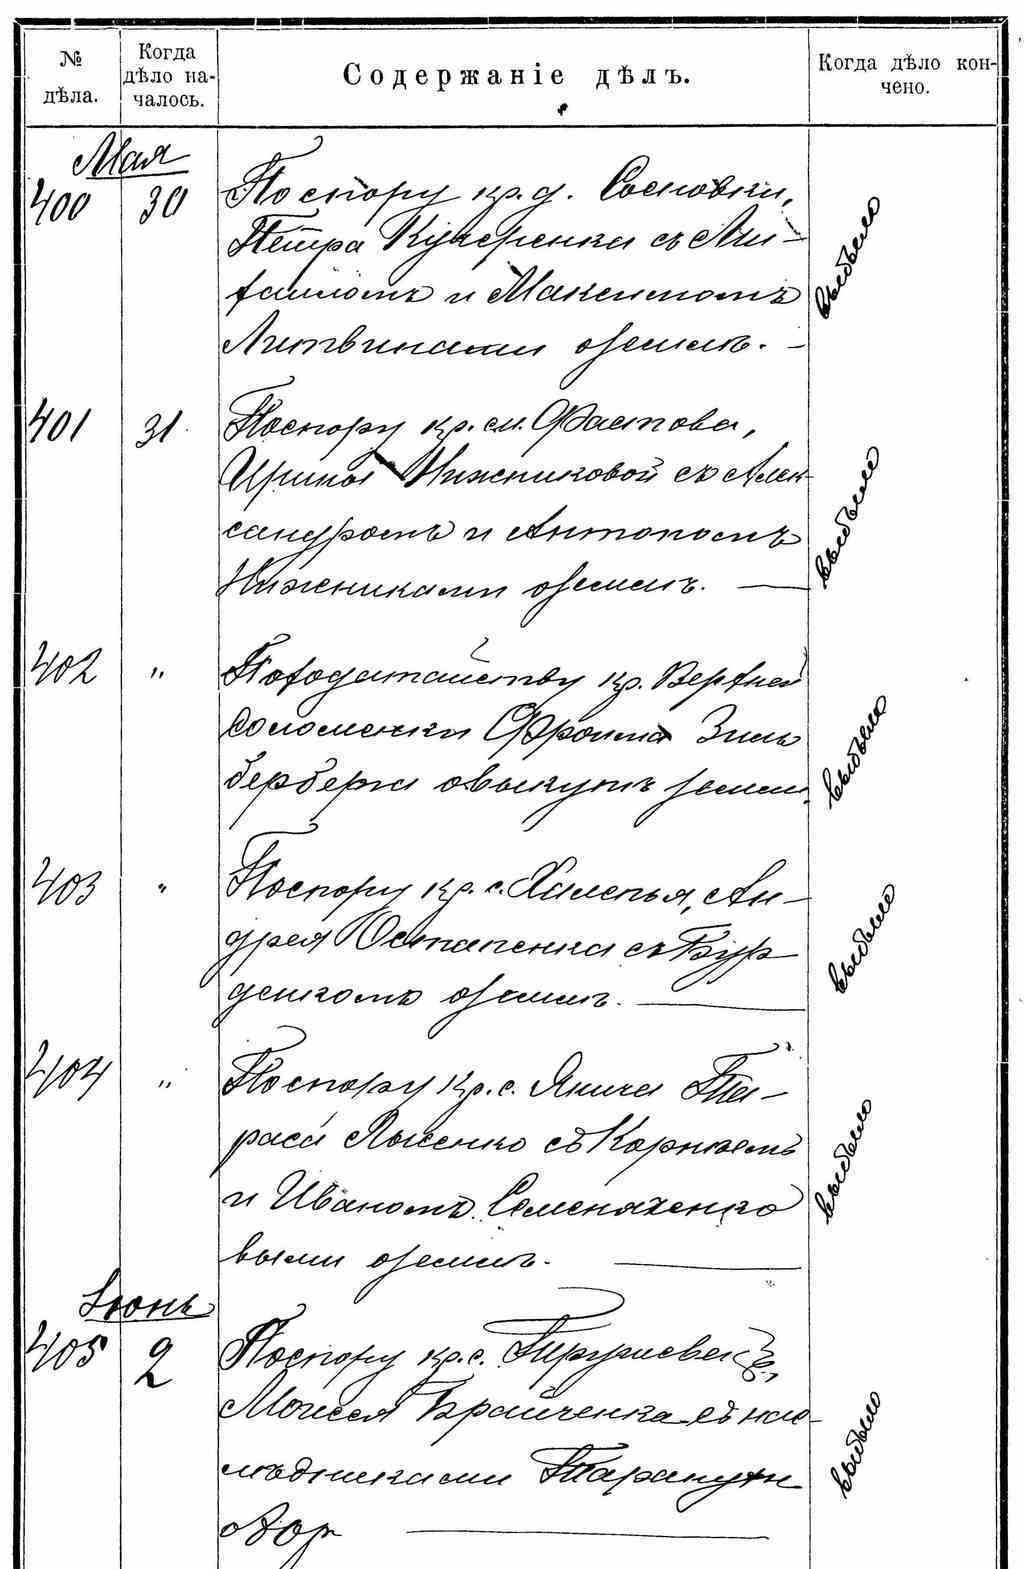 № дѣла.
Когда дѣло на-
чалось.
Содержаніе дѣлъ.
Когда дѣло кон-
чено.
Мая
400 30 По спору кр. д. Сосновки,
Петра Кучеренки съ Ми-
хаиломъ и Максимомъ
Литвинами о земле. —
выбыло
401 31 По спору кр. м. Фастова,
Ирины Нижниковой съ Алек-
сандромъ и Антономъ
Нижниками о земле. —
выбыло
402 " По ходатайству кр. Верхней
Соломенки Фроима Зиль
берберга о выкупѣ земли
выбыло
403 " По спору кр. с. Халепья, Ан-
дрея Остапенка съ Бур
денкомъ о земле. —
выбыло
404 " По спору кр. с. Янича Та-
раса съ Корніемъ
и Иваномъ Семеняченко
выми о земле. —
выбыло
Іюнь
405 2 По спору кр. с.
Моисея Брайченка съ нас-
лѣдниками Таранухи
—
выбыло